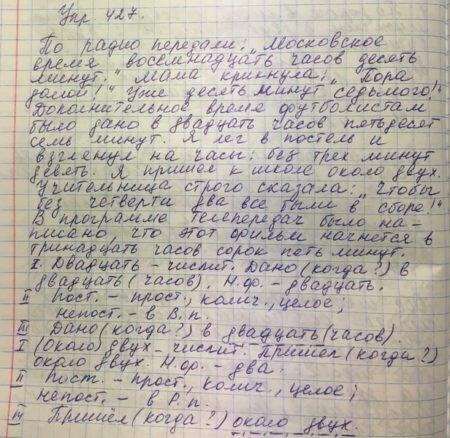 Упр 427.
По радио передали: „Московское
время восемнадцать часов десять
минут." Мама крикнула: „Пора
домой!" Уже десять минут седьмого!"
Дополнительное время футболистам
было дано в двадцать часов пятьдесят
семь минут. Я лег в постель и
взглянул на часы: без трех минут
девять. Я пришел к школе около двух.
Учительница строго сказала: „Чтобы
без четверти два все были в сборе!"
В программе телепередач было на-
писано, что этот фильм начнется в
тринадцать часов сорок пять минут.
I. Двадцать - числит. Дано (когда?) в
двадцать (часов). Н.ф. - двадцать.
II Пост. - прост., колич., целое;
непост. - в В.п.
III Дано (когда?) в двадцать (часов).
I (Около) двух - числит. Пришел (когда?)
около двух. Н.ф. - два.
II Пост. - прост., колич., целое;
непост. - в Р.п.
III Пришёл (когда?) около двух.